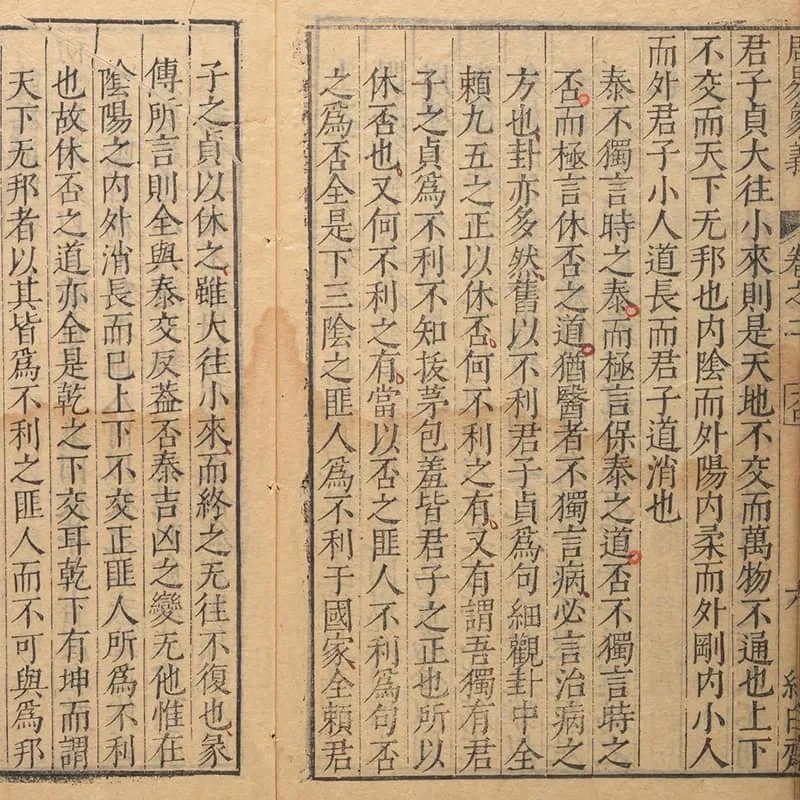 周易象義 卷之二 否 六
君子貞大往小來則是天地不交而萬物不通也上下
不交而天下无邦也内陰而外陽内柔而外剛内小人
而外君子小人道長而君子道消也
泰不獨言時之泰而極言保泰之道否不獨言時之
否而極言休否之道猶醫者不獨言病必言治病之
方也卦亦多然舊以不利君子貞爲句細觀卦中全
賴九五之正以休否何不利之有又有謂吾獨有君
子之貞爲不利不知拔茅包羞皆君子之正也所以
休否也又何不利之有當以否之匪人不利爲句否
之爲否全是下三陰之匪人爲不利于國家全賴君
子之貞以休之雖大往小來而終之无往不復也彖
傳所言則全與泰交反葢否泰吉凶之變无他惟在
陰陽之内外消長而已上下不交正匪人所爲不利
也故休否之道亦全是乾之下交耳乾下有坤而謂
天下无邦者以其皆爲不利之匪人而不可與爲邦